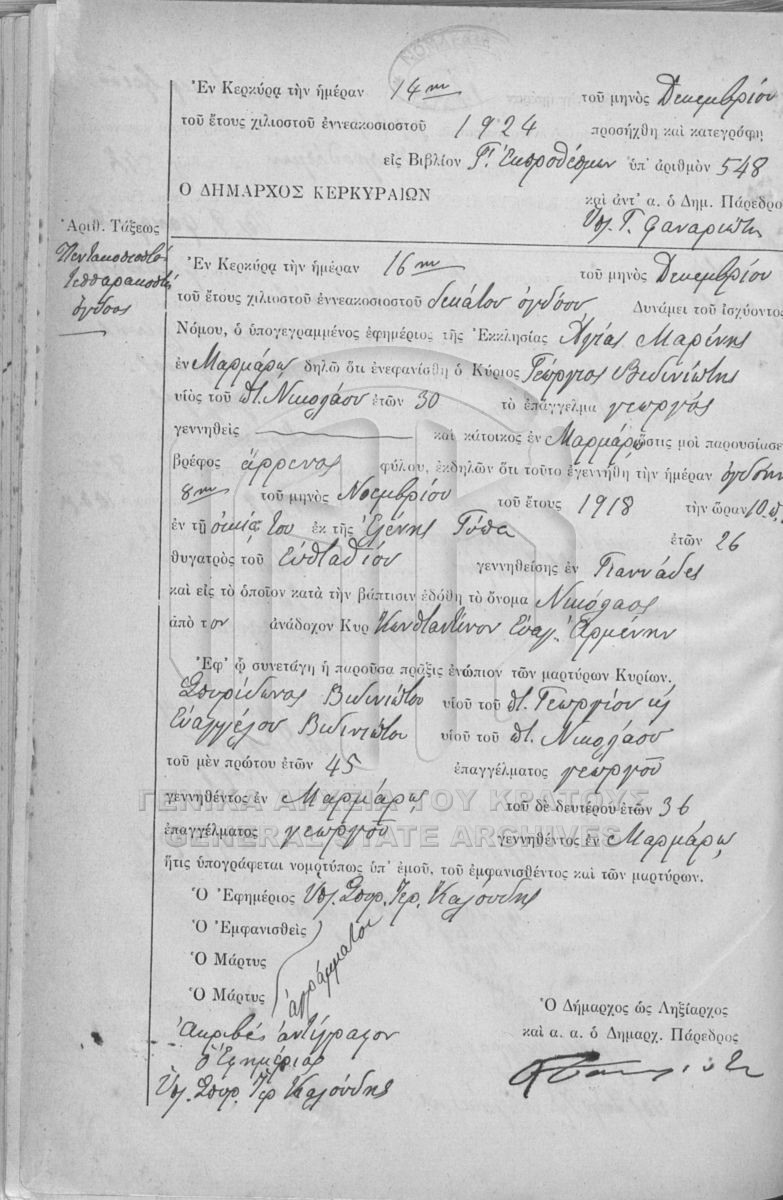 Ἐν Κερκύρᾳ τὴν ἡμέραν 14ην τοῦ μηνὸς Δεκεμβρίου
τοῦ ἔτους χιλιοστοῦ ἐννεακοσιοστοῦ 1924 προσήχθη καὶ κατεγράφη
εἰς Βιβλίον Γ. Ἐκπροθέσμων ὑπ' ἀριθμὸν 548
Ο ΔΗΜΑΡΧΟΣ ΚΕΡΚΥΡΑΙΩΝ
καὶ ἀντ' α. ὁ Δημ. Πάρεδρο
Ὑπ. Γ. Φαναριώτης
Ἀριθ. Τάξεως
Πεντακοσιοστὸ
τεσσαρακοστὸ
ὄγδοος
Ἐν Κερκύρᾳ τὴν ἡμέραν 16ην τοῦ μηνὸς Δεκεμβρίου
τοῦ ἔτους χιλιοστοῦ ἐννεακοσιοστοῦ δεκάτου ὀγδόου Δυνάμει τοῦ ἰσχύοντος
Νόμου, ὁ ὑπογεγραμμένος ἐφημέριος τῆς Ἐκκλησίας Ἁγίας Μαρίνης
ἐν Μαρμάρῳ δηλῶ ὅτι ἐνεφανίσθη ὁ Κύριος Γεώργιος Βιδινιώτης
υἱὸς τοῦ ποτ. Νικολάου ἐτῶν 30 τὸ ἐπάγγελμα γεωργός
γεννηθεὶς καὶ κάτοικος ἐν Μαρμάρῳ ὅστις μοὶ παρουσίασε
βρέφος ἄρρενος φύλου, ἐκδηλῶν ὅτι τοῦτο ἐγεννήθη τὴν ἡμέραν ὀγδόην
8ην τοῦ μηνὸς Νοεμβρίου τοῦ ἔτους 1918 τὴν ὥραν 10
ἐν τῇ οἰκίᾳ του ἐκ τῆς Ἑλένης ἐτῶν 26
θυγατρὸς τοῦ Εὐσταθίου γεννηθείσης ἐν Γιαννάδες
καὶ εἰς τὸ ὁποῖον κατὰ τὴν βάπτισιν ἐδόθη τὸ ὄνομα Νικόλαος
ἀπὸ τὸν ἀνάδοχον Κυρ Κωνσταντῖνον Εὐαγ. Ἀρμένην
Ἐφ' ᾧ συνετάγη ἡ παροῦσα πρᾶξις ἐνώπιον τῶν μαρτύρων Κυρίων.
Σπυρίδωνος Βιδινιώτου υἱοῦ τοῦ ποτ. Γεωργίου κ
Εὐαγγέλου Βιδινιώτου υἱοῦ τοῦ ποτ. Νικολάου
τοῦ μὲν πρώτου ἐτῶν 45 ἐπαγγέλματος γεωργοῦ
γεννηθέντος ἐν Μαρμάρῳ τοῦ δὲ δευτέρου ἐτῶν 36
ἐπαγγέλματος γεωργοῦ γεννηθέντος ἐν Μαρμάρῳ
ἥτις ὑπογράφεται νομοτύπως ὑπ' ἐμοῦ, τοῦ ἐμφανισθέντος καὶ τῶν μαρτύρων.
Ὁ Ἐφημέριος Ὑπ. Σπυρ. Ἱερ. Καλούδης
Ὁ Ἐμφανισθεὶς
Ὁ Μάρτυς
Ὁ Μάρτυς
ἀγράμματοι
Ἀκριβὲς ἀντίγραφον
ὁ Ἐφημέριος
Ὑπ. Σπυρ. Ἱερ Καλούδης
Ὁ Δήμαρχος ὡς Ληξίαρχος
καὶ α. α. ὁ Δημαρχ. Πάρεδρος
ΓΕΝΙΚΑ ΑΡΧΕΙΑ ΤΟΥ ΚΡΑΤΟΥΣ
GENERAL STATE ARCHIVES